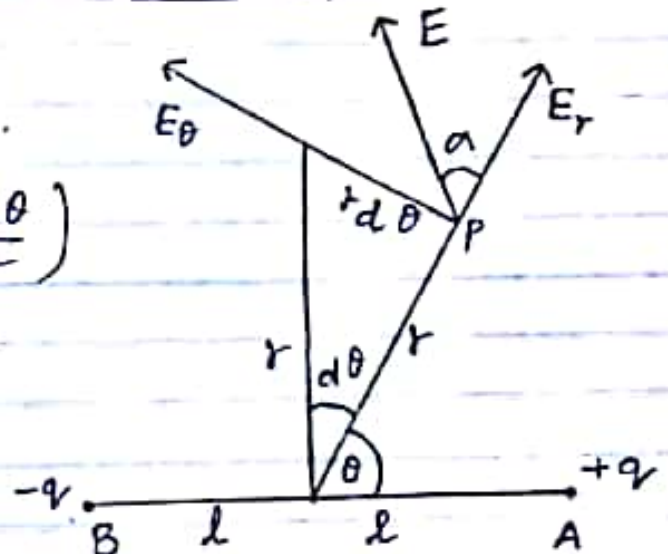 E
E_θ
E_r
α
θ )
r d θ
P
r
dθ
r
θ
-q
+q
B
l
l
A